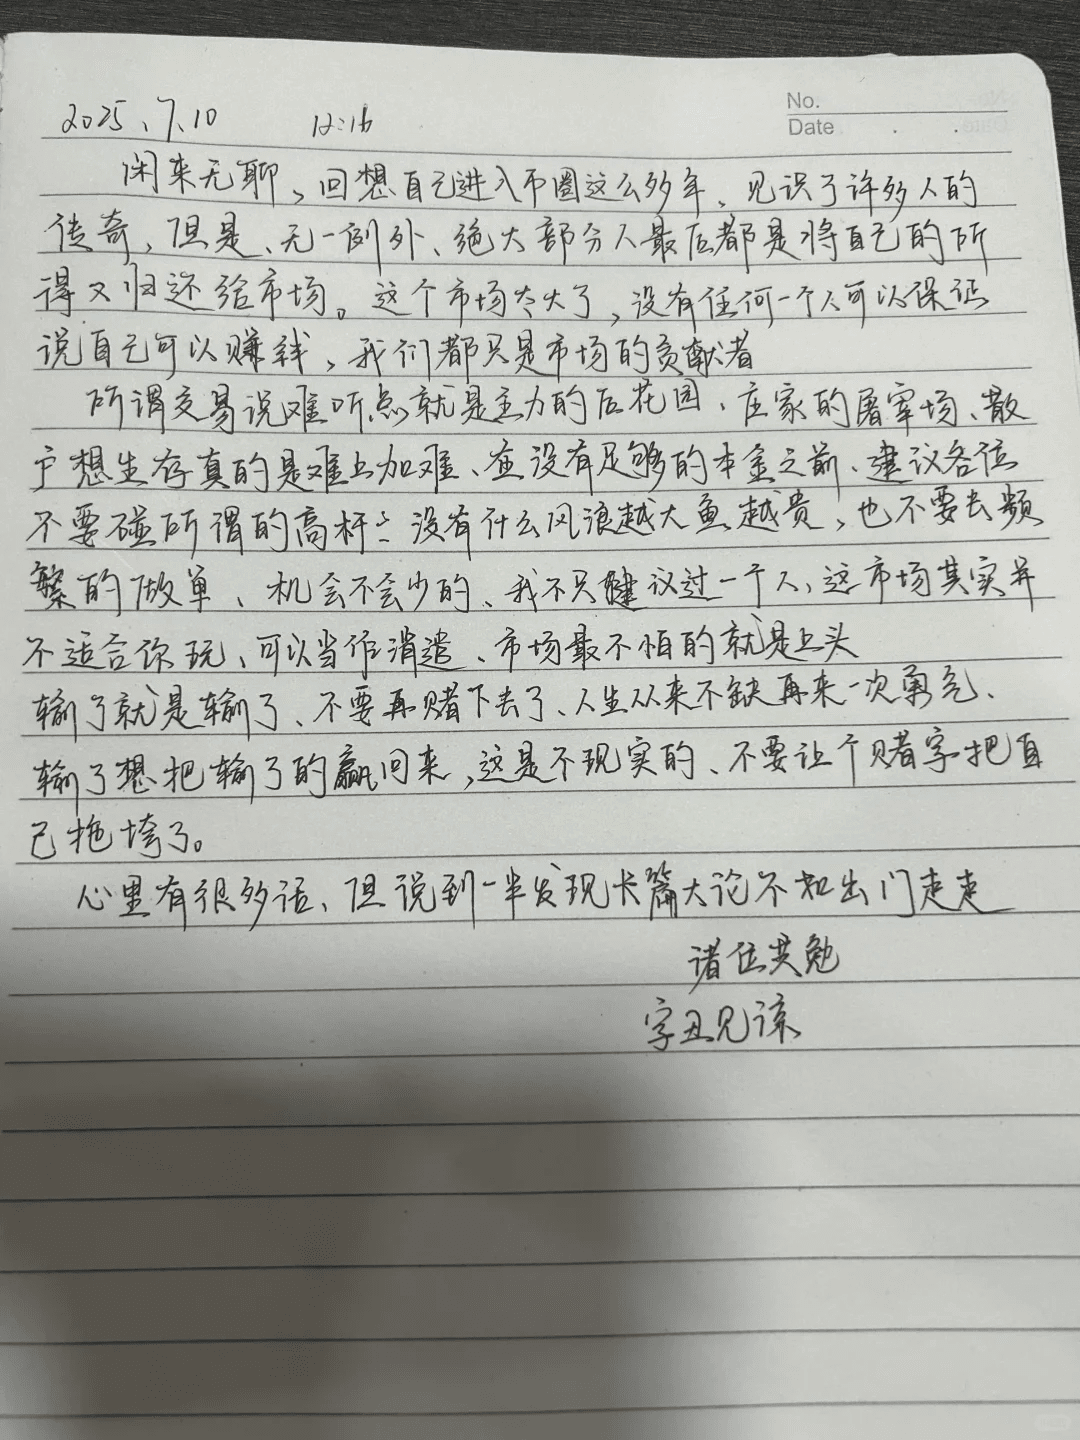 No.
Date
2025.7.10 12:16
闲来无聊、回想自己进入币圈这么多年、见识了许多人的
传奇、但是、无一例外、绝大部分人最后都是将自己的所
得又归还给市场。这个市场太大了,没有任何一个人可以保证
说自己可以赚钱、我们都只是市场的贡献者
所谓交易说难听点就是主力的后花园、庄家的屠宰场、散
户想生存真的是难上加难、在没有足够的本金之前、建议各位
不要碰所谓的高杆 没有什么风浪越大鱼越贵,也不要去频
繁的做单、机会不会少的、我不只建议过一个人、这市场其实并
不适合你玩、可以当作消遣、市场最不怕的就是上头
输了就是输了、不要再赌下去了、人生从来不缺再来一次勇气、
输了想把输了的赢回来,这是不现实的、不要让个赌字把自
己拖垮了。
心里有很多话、但说到一半发现长篇大论不如出门走走
诸位共勉
字丑见谅